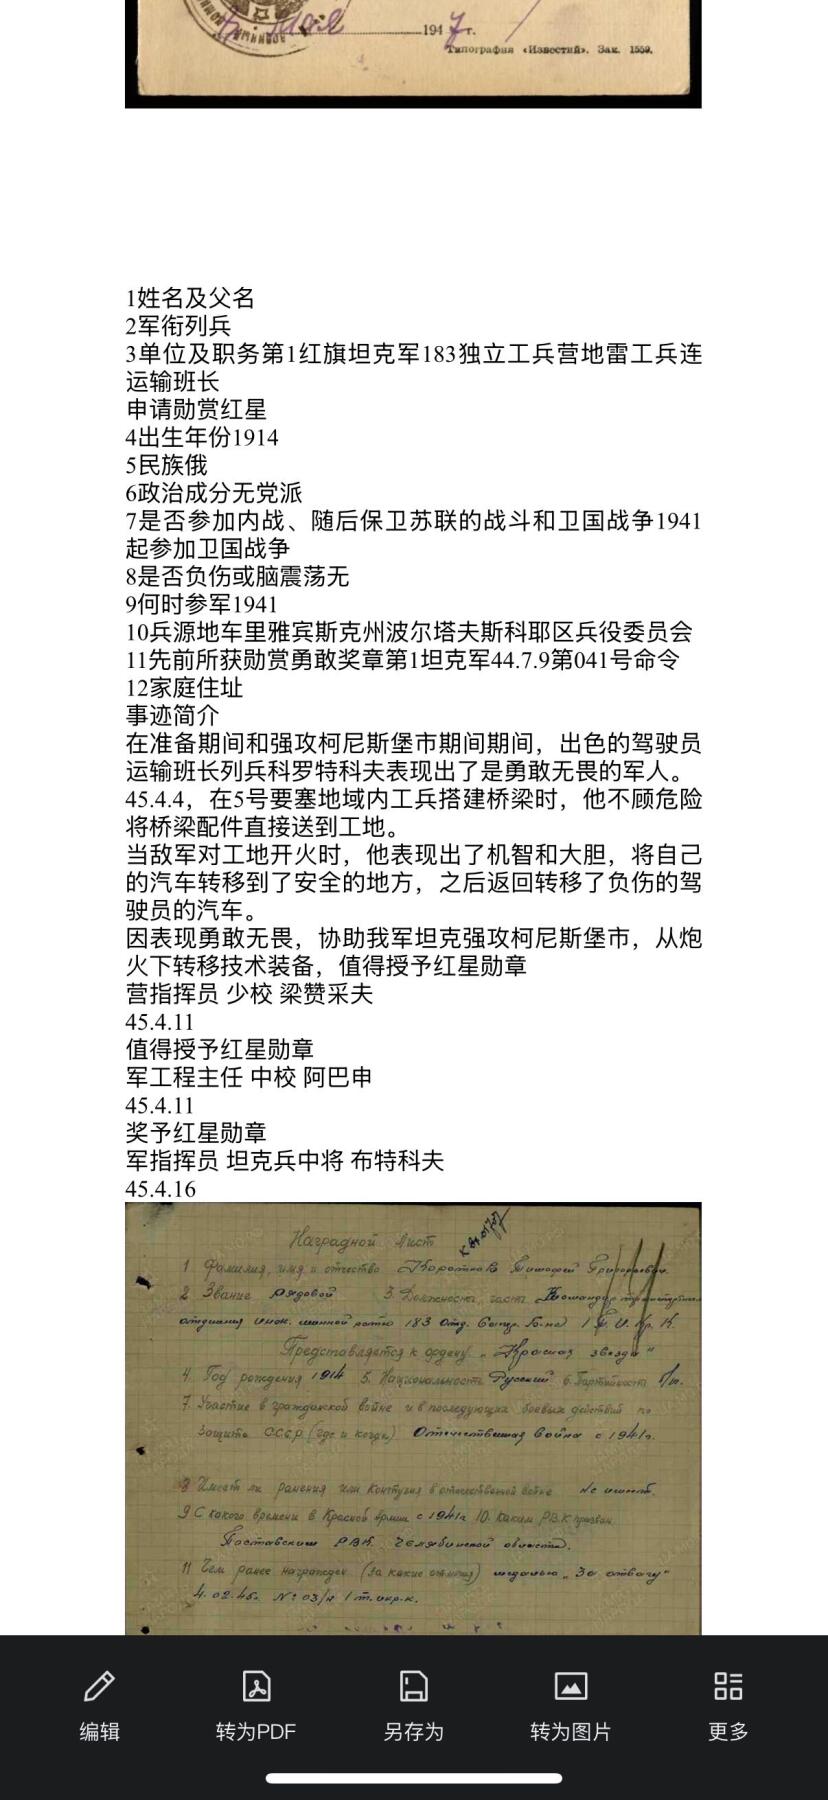 мая 1947 г.
Типография «Известий». Зак. 1559.
1姓名及父名
2军衔列兵
3单位及职务第1红旗坦克军183独立工兵营地雷工兵连
运输班长
申请勋赏红星
4出生年份1914
5民族俄
6政治成分无党派
7是否参加内战、随后保卫苏联的战斗和卫国战争1941
起参加卫国战争
8是否负伤或脑震荡无
9何时参军1941
10兵源地车里雅宾斯克州波尔塔夫斯科耶区兵役委员会
11先前所获勋赏勇敢奖章第1坦克军44.7.9第041号命令
12家庭住址
事迹简介
在准备期间和强攻柯尼斯堡市期间期间，出色的驾驶员
运输班长列兵科罗特科夫表现出了是勇敢无畏的军人。
45.4.4，在5号要塞地域内工兵搭建桥梁时，他不顾危险
将桥梁配件直接送到工地。
当敌军对工地开火时，他表现出了机智和大胆，将自己
的汽车转移到了安全的地方，之后返回转移了负伤的驾
驶员的汽车。
因表现勇敢无畏，协助我军坦克强攻柯尼斯堡市，从炮
火下转移技术装备，值得授予红星勋章
营指挥员 少校 梁赞采夫
45.4.11
值得授予红星勋章
军工程主任 中校 阿巴申
45.4.11
奖予红星勋章
军指挥员 坦克兵中将 布特科夫
45.4.16
Наградной лист
1 Фамилия, имя и отчество Коротков Тимофей Григорьевич.
2 Звание рядовой 3. Должность, часть Командир
отделения инж. минной роты 183 Отд. Сапер. Б-на 1
Представляется к ордену „Красная звезда"
4. Год рождения 1914 5. Национальность Русский 6. Партийность б/п.
7. Участие в гражданской войне и в последующих боевых действий по
защите СССР (где и когда) Отечественная война с 1941г.
8 Имеет ли ранения или контузия в отечественной войне не имеет.
9 С какого времени в Красной Армии с 1941г 10. Каким РВК призван
РВК Челябинской области.
11 Чем ранее награжден (за какие отличия) медалью „За отвагу"
4.02.45г. № 03/н 1
编辑
转为PDF
另存为
转为图片
更多